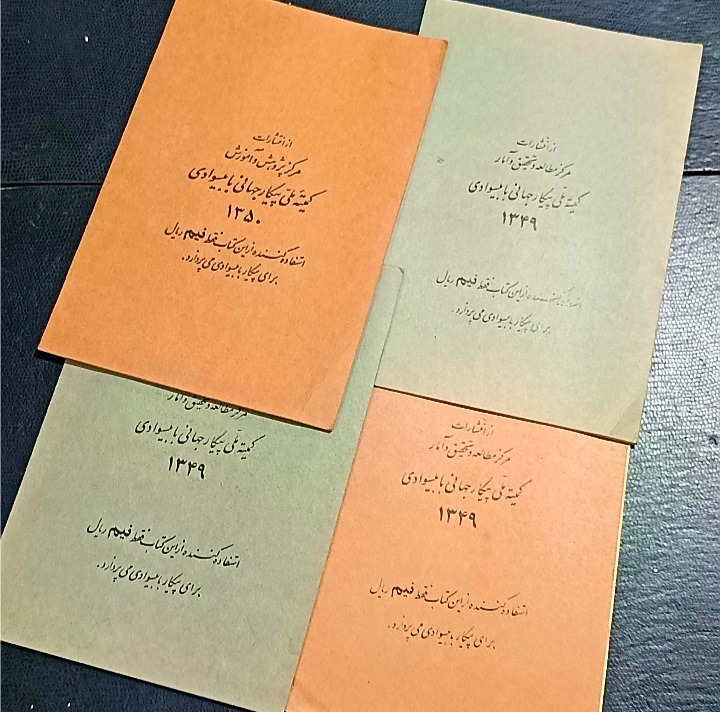 از انتشارات
مرکز پژوهش و آموزش
کمیته ملی پیکار جهانی با بیسوادی
۱۳۵۰
استفاده کننده از این کتاب فقط نیم ریال
برای پیکار با بیسوادی می پردازد.
از انتشارات
مرکز مطالعه و تحقیق و آمار
کمیته ملی پیکار جهانی با بیسوادی
۱۳۴۹
استفاده کننده از این کتاب فقط نیم ریال
برای پیکار با بیسوادی می پردازد.
مرکز مطالعه و تحقیق و آمار
کمیته ملی پیکار جهانی با بیسوادی
۱۳۴۹
استفاده کننده از این کتاب فقط نیم ریال
برای پیکار با بیسوادی می پردازد.
از انتشارات
مرکز مطالعه و تحقیق و آمار
کمیته ملی پیکار جهانی با بیسوادی
۱۳۴۹
استفاده کننده از این کتاب فقط نیم ریال
برای پیکار با بیسوادی می پردازد.